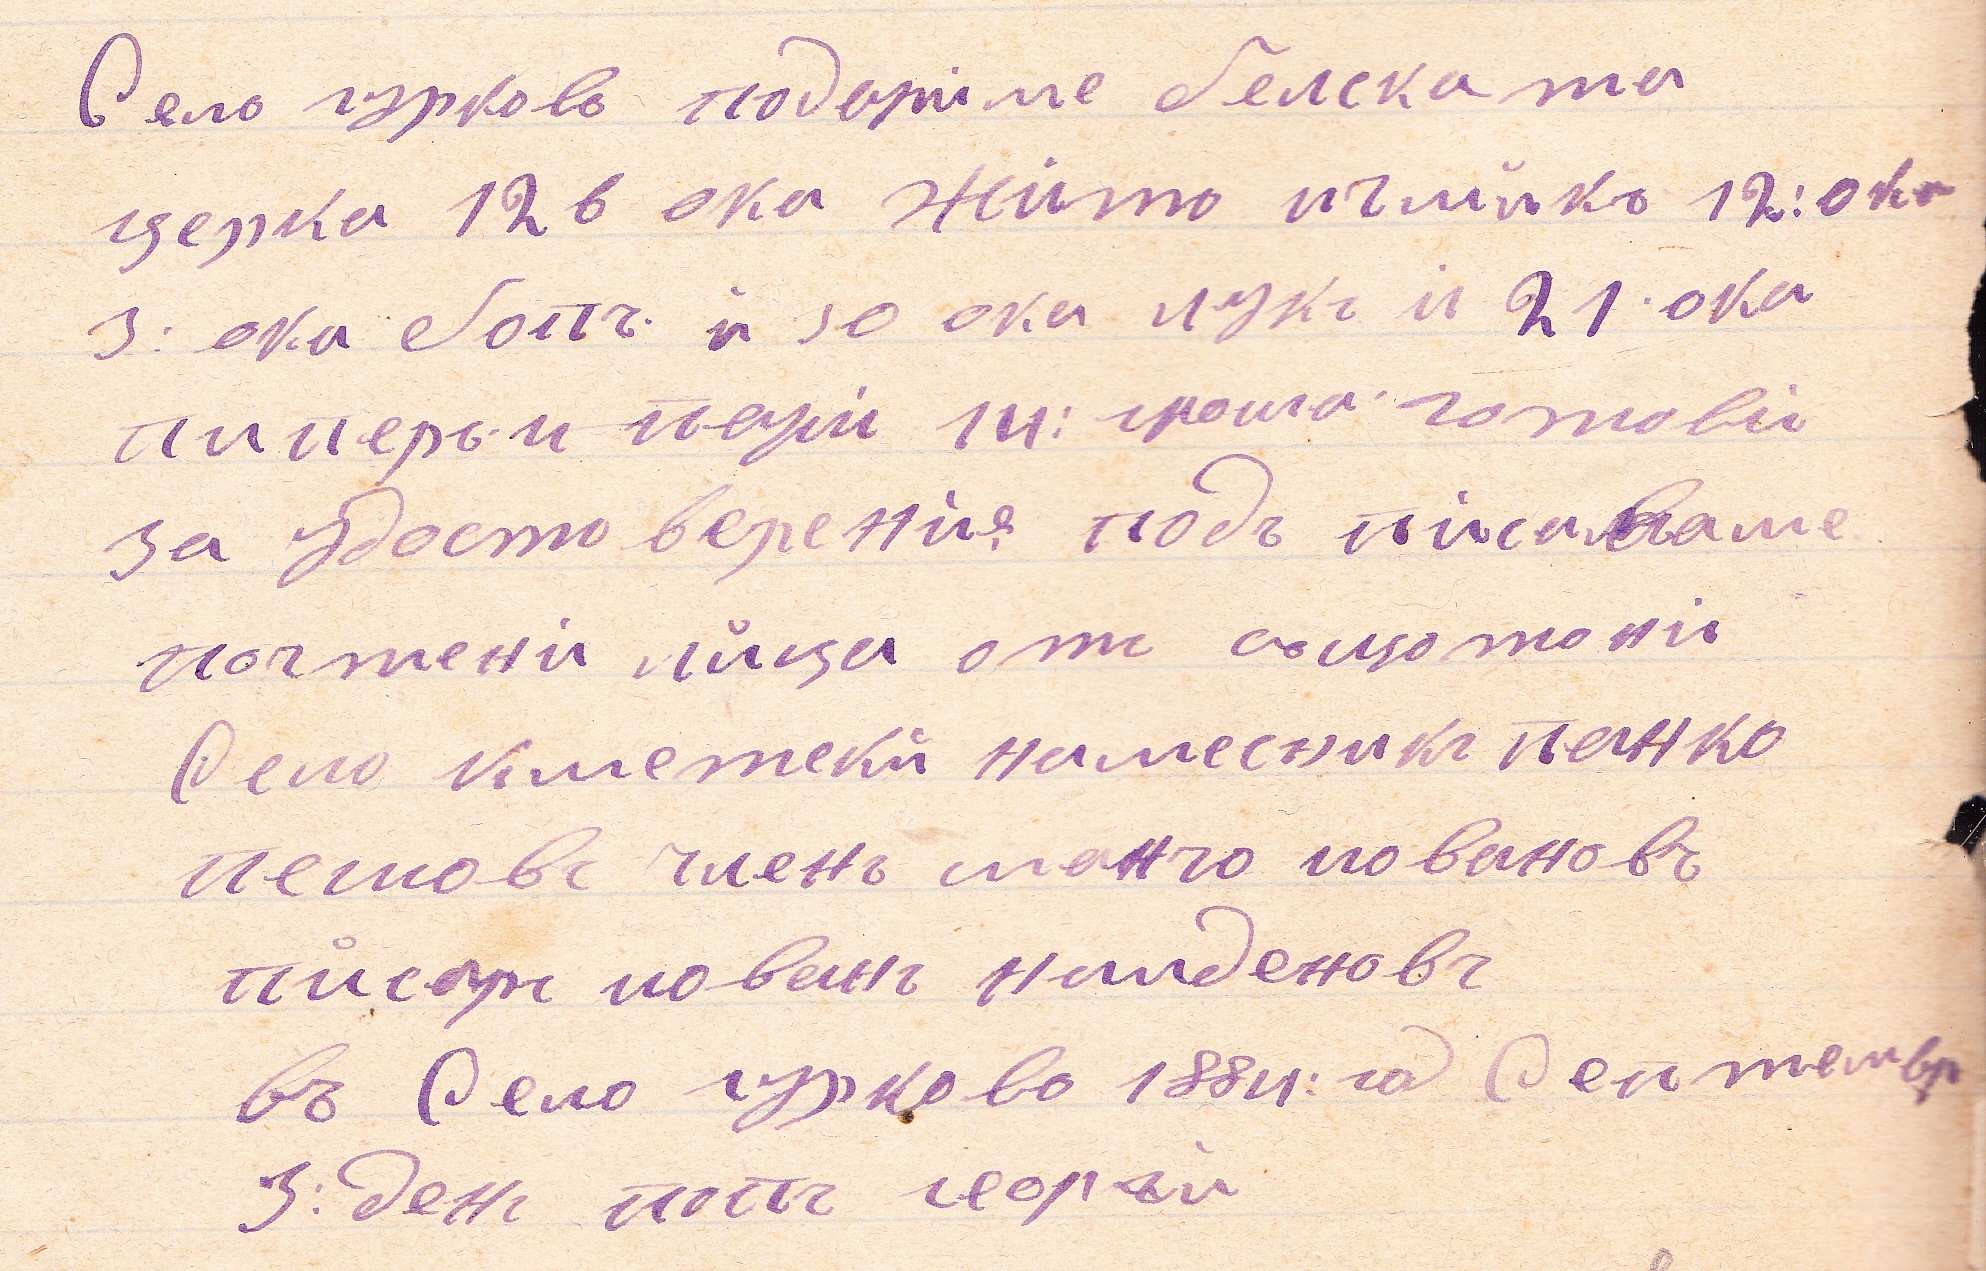 Село гурково подариме белската
церка 126 ока жито ичмико 12: ока
3: ока бопъ и 30 ока лукъ и 21 ока
пиперъ и пари 14: гроша готови
За удостоверения подъ писаваме
почтени лица отъ същотони
Село кметски намесникъ панко
пешовъ членъ станчо иовановъ
писаръ иованъ найденовъ
въ Село гурково 1884: год Септемвр
3: денъ попъ георги